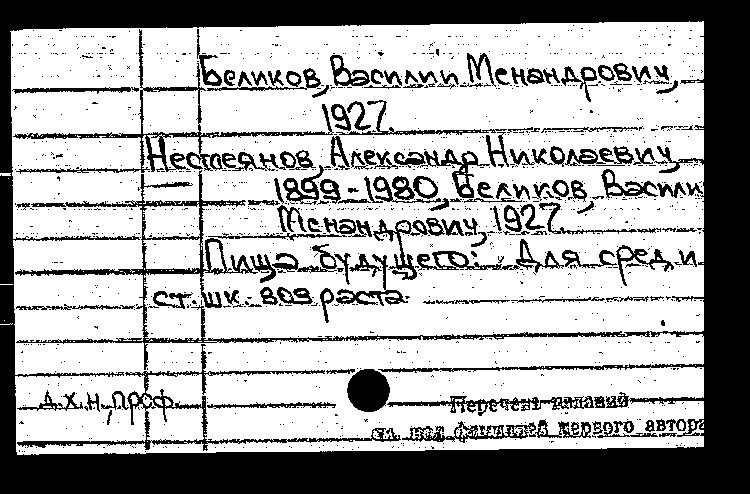 Беликов, Василий Менандрович,
1927.
Несмеянов, Александр Николаевич,
1899-1980, Беликов, Васили
Менандрович, 1927.
Пища будущего: Для сред. и
ст. шк. возраста.
д.х.н., проф.
Перечень изданий
см. под фамилией первого автора